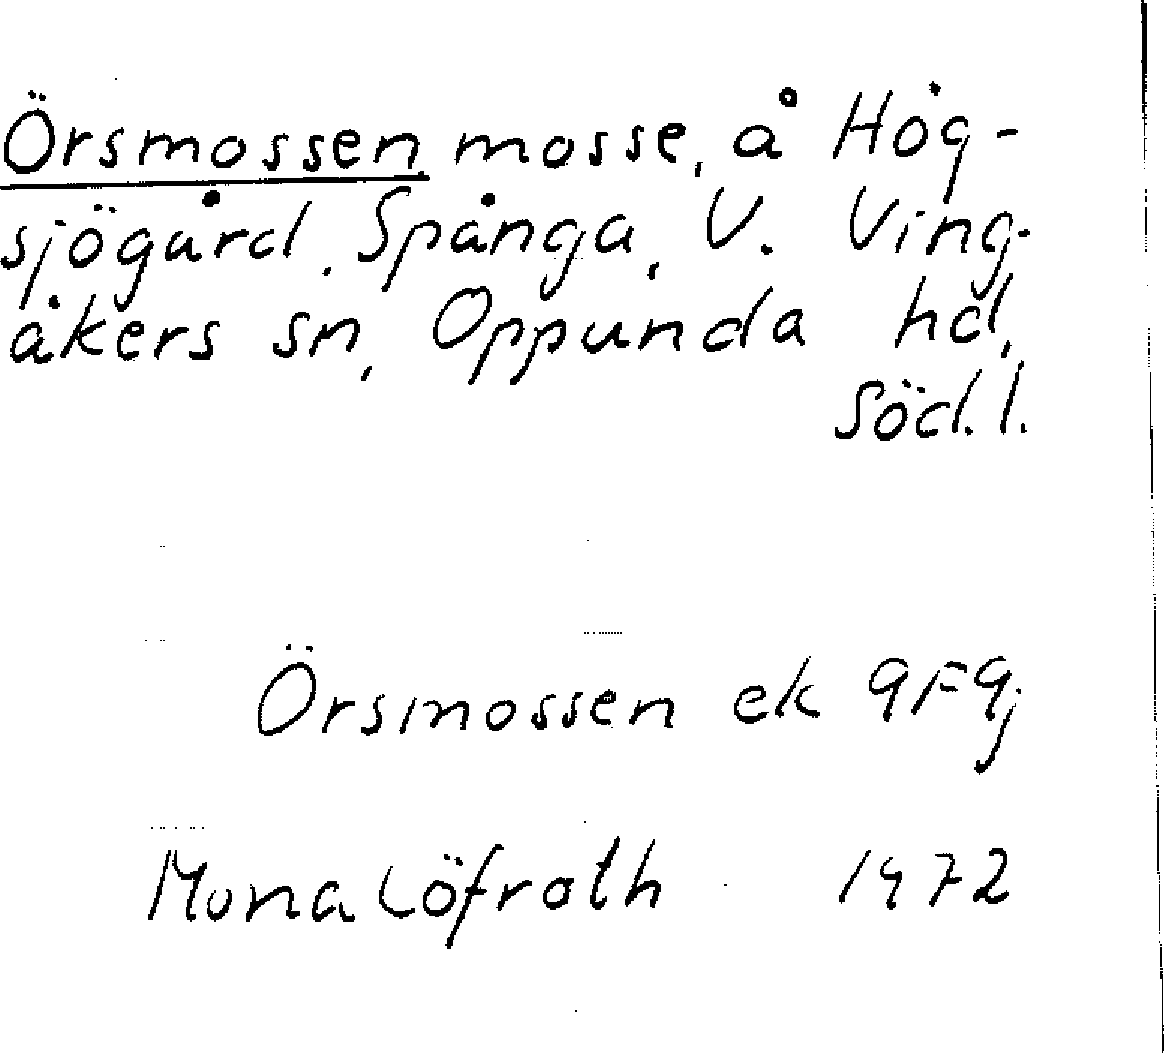 Örsmossen mosse, å Hög-
sjögård, Spånga, V. Ving-
åkers sn, Oppunda hd,
Söd.l.
Örsmossen ek 9F9j
Mona Löfroth 1972